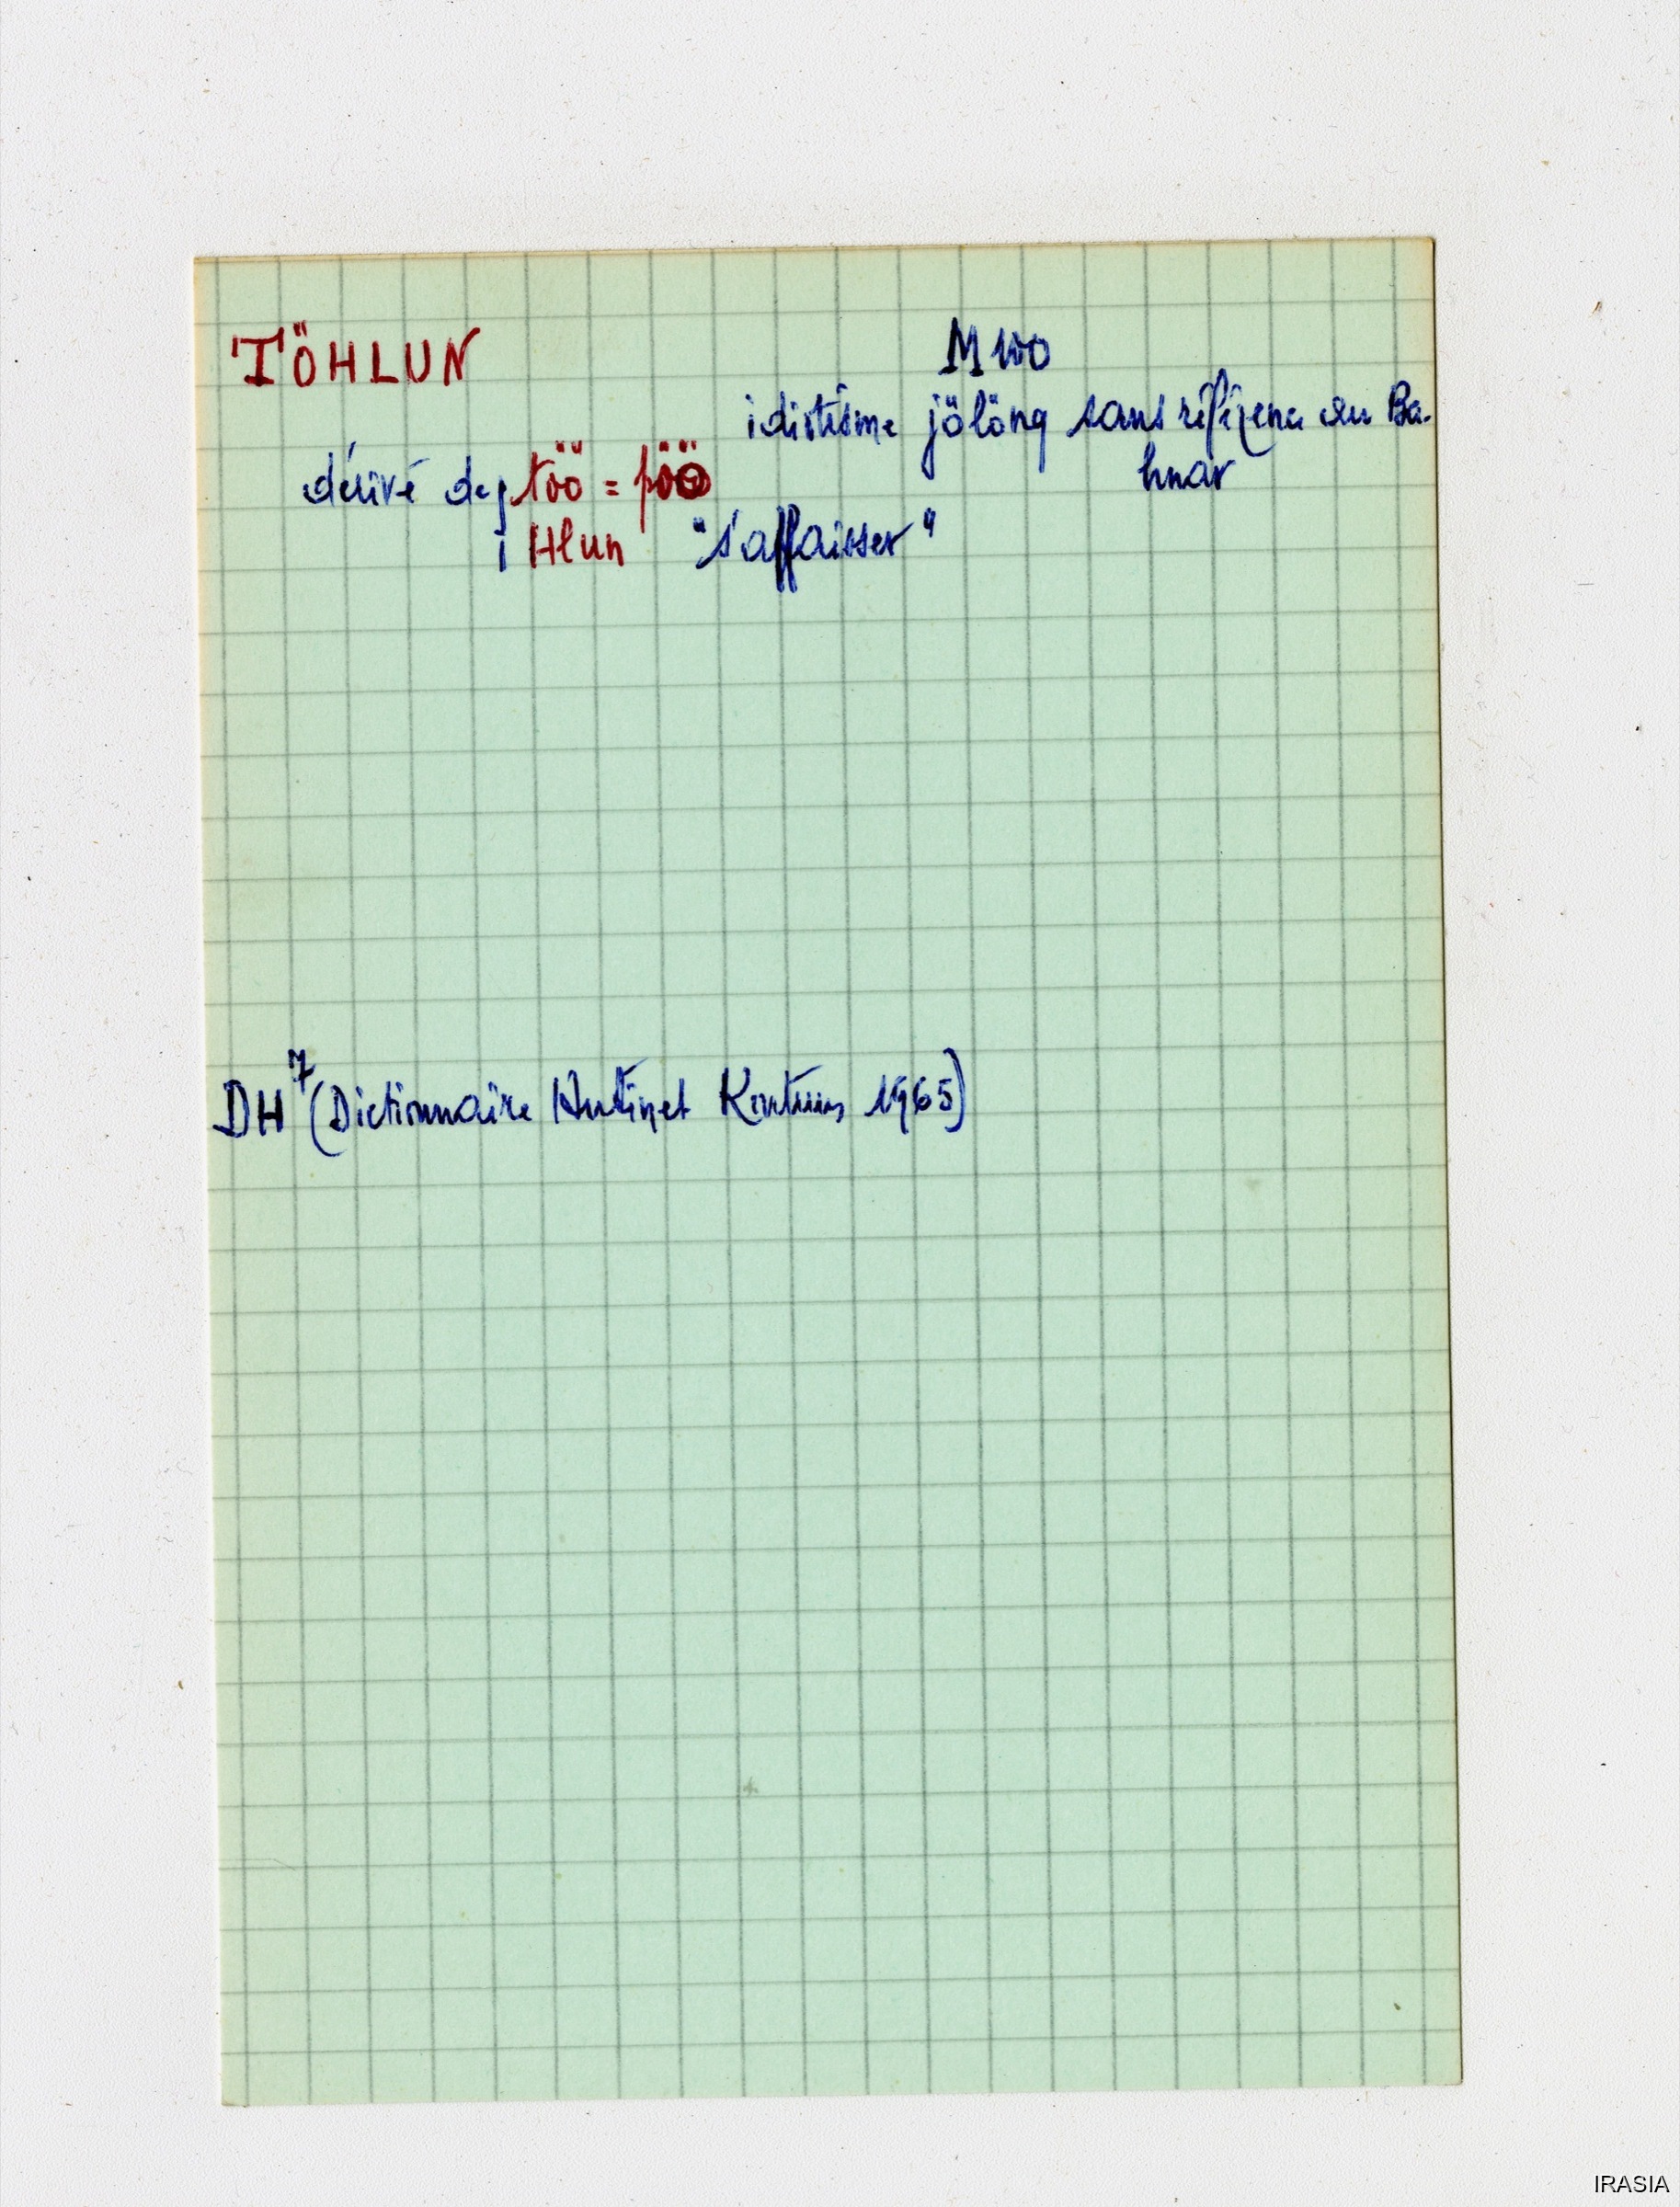 TÖHLUN
M100
idiotisme jölöng sans référence au Ba-
hnar
dérivé de töö = pöö
Hlun "s'affaisser"
DH7 (Dictionnaire Hutinet Kontum 1965)
IRASIA